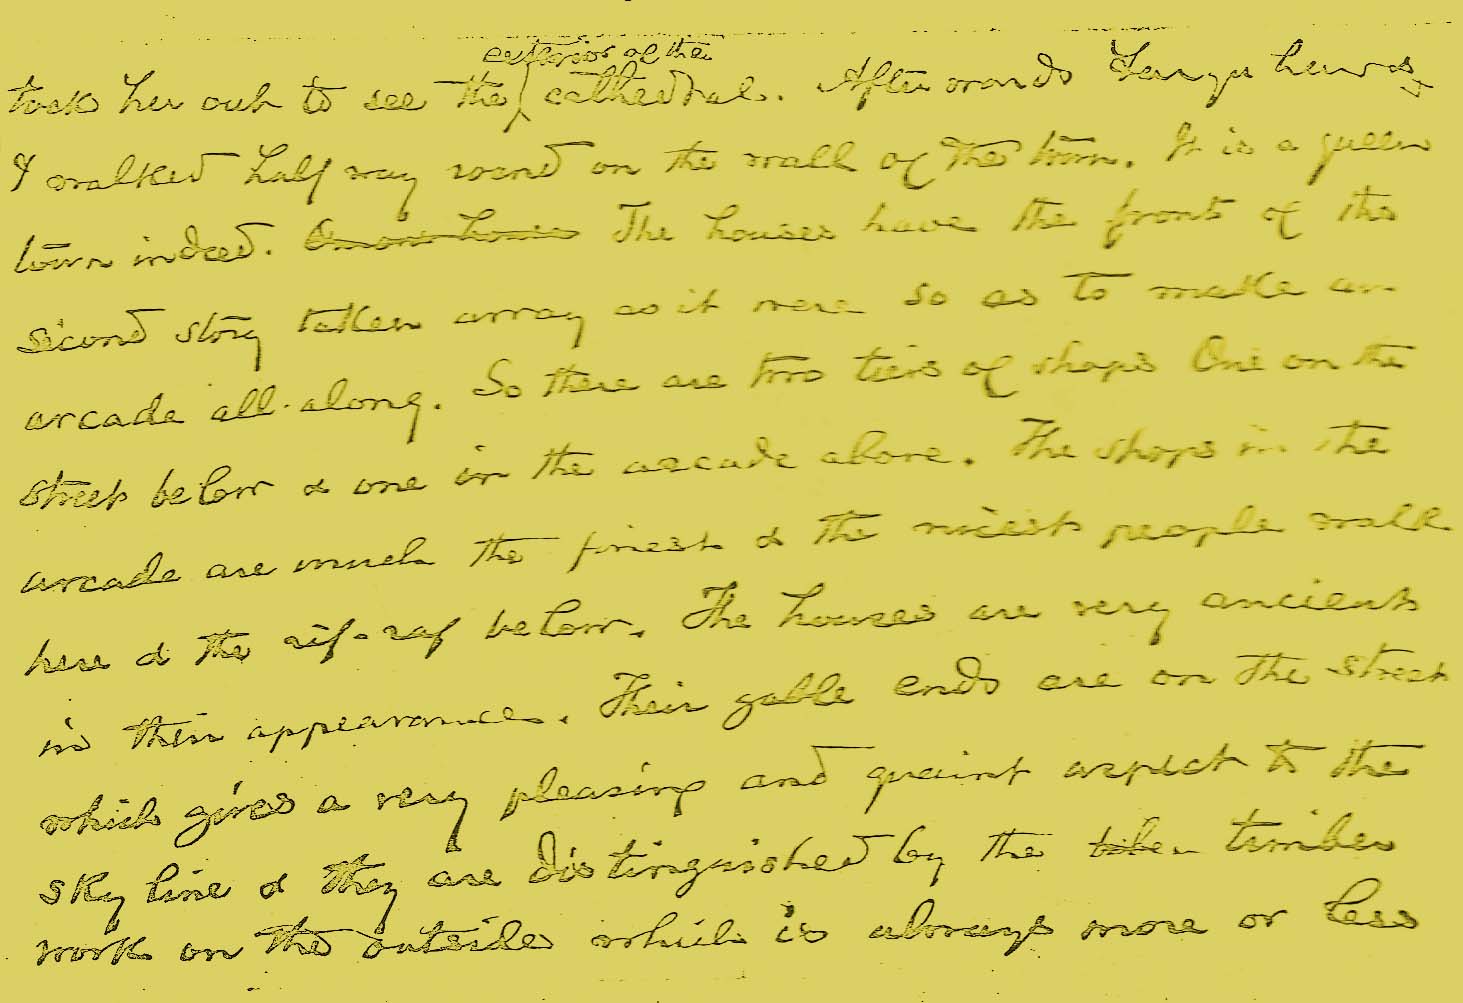 exterior of the
took her out to see the cathedral. Afterwards &
I walked half way round on the wall of the town. It is a queer
town indeed. The houses have the front of the
second story taken away as it were so as to make an
arcade all along. So there are two tiers of shops One on the
street below & one in the arcade above. The shops in the
arcade are much the finest & the nicest people walk
here & the rif-raf below. The houses are very ancient
in their appearance. Their gable ends are on the street
which gives a very pleasing and quaint aspect to the
sky line & they are distinguished by the timber
work on the outside which is always more or less